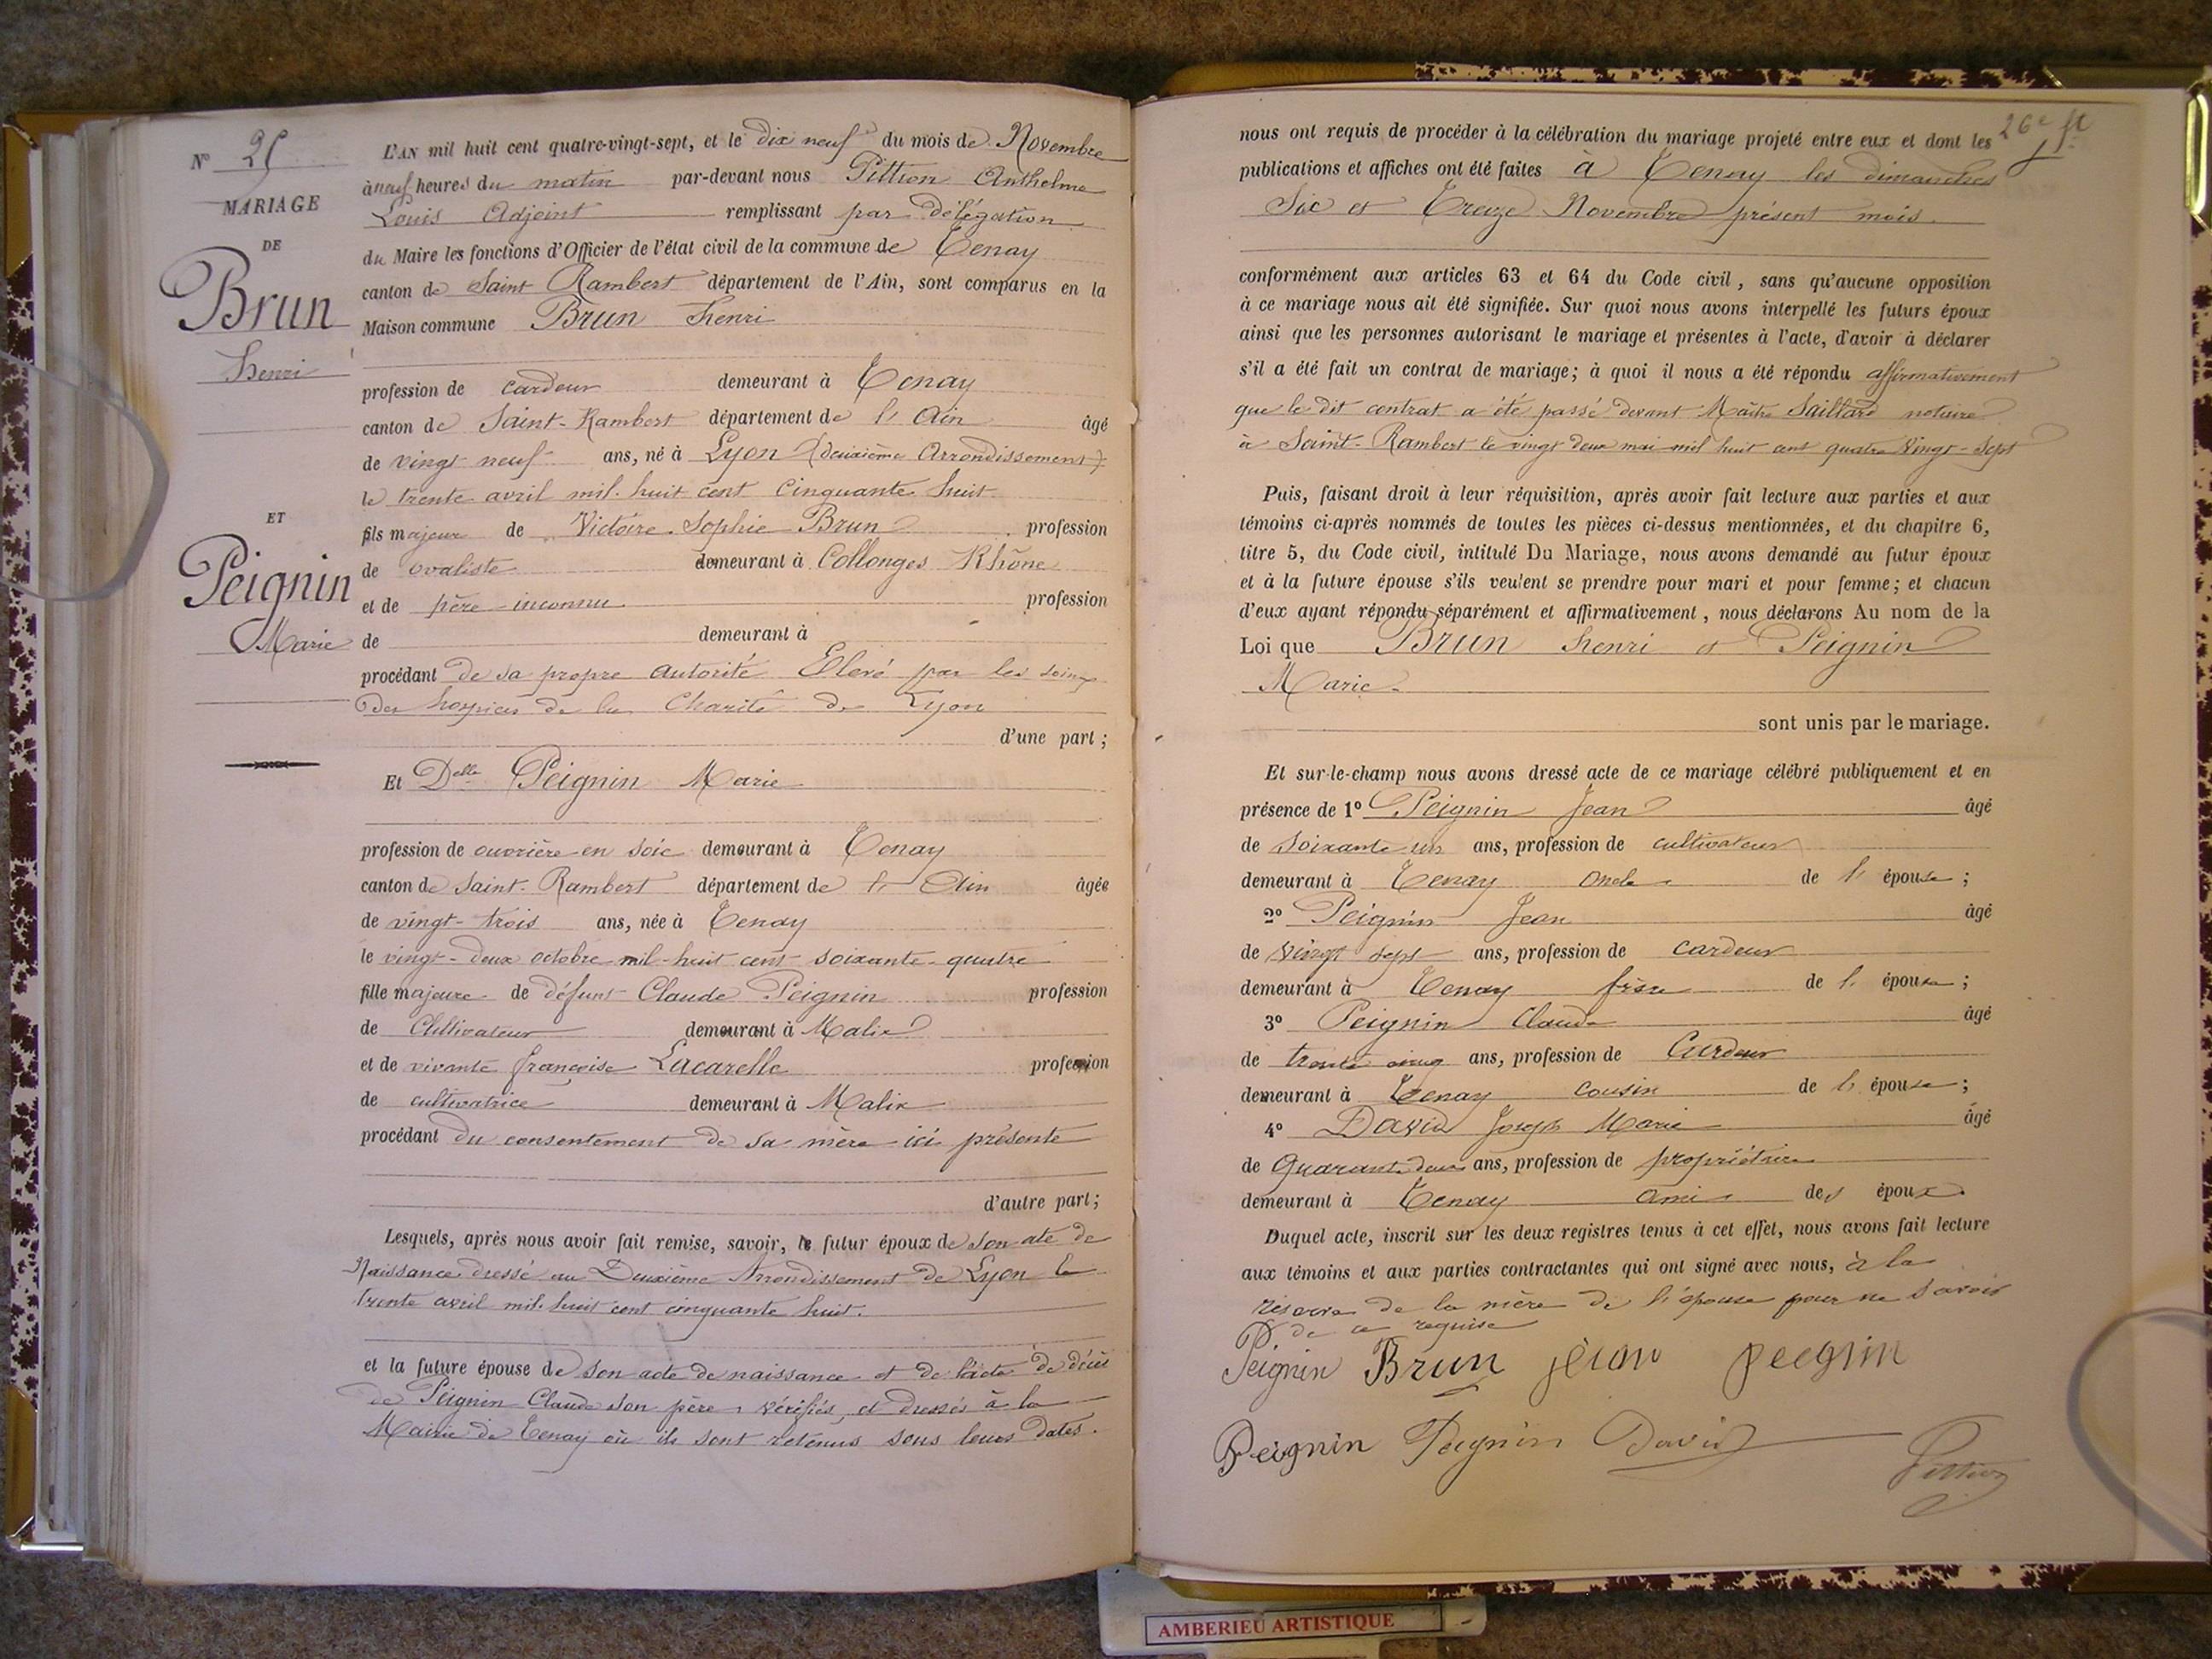 N° 25
MARIAGE
DE
Brun
Henri
ET
Peignin
Marie
L'AN mil huit cent quatre-vingt-sept, et le dix neuf du mois de Novembre
à neuf heures du matin par-devant nous Pittion Anthelme
Louis Adjoint remplissant par délégation
du Maire les fonctions d'Officier de l'état civil de la commune de Tenay
canton de Saint Rambert département de l'Ain, sont comparus en la
Maison commune Brun Henri
profession de cardeur demeurant à Tenay
canton de Saint-Rambert département de l'Ain âgé
de vingt neuf ans, né à Lyon (deuxième Arrondissement)
le trente avril mil huit cent cinquante huit
fils majeur de Victoire Sophie Brun profession
de ovaliste demeurant à Collonges Rhône
et de père inconnu profession
de demeurant à
procédant de sa propre autorité Elevé par les soins
des hospices de la Charité de Lyon
d'une part ;
Et Delle Peignin Marie
profession de ouvrière en soie demeurant à Tenay
canton de Saint-Rambert département de l'Ain âgée
de vingt-trois ans, née à Tenay
le vingt-deux octobre mil-huit cent soixante-quatre
fille majeure de défunt Claude Peignin profession
de Cultivateur demeurant à Malix
et de vivante françoise Lacarelle profession
de cultivatrice demeurant à Malix
procédant du consentement de sa mère ici présente
d'autre part ;
Lesquels, après nous avoir fait remise, savoir, le futur époux de son ate de
Naissance dressé au Deuxième Arrondissement de Lyon le
trente avril mil huit cent cinquante huit.
et la future épouse de son acte de naissance et de l'acte de décès
de Peignin Claude son père, vérifiés, et dressés à la
Mairie de Tenay où ils sont retenus sous leurs dates.
26e ft
nous ont requis de procéder à la célébration du mariage projeté entre eux et dont les
publications et affiches ont été faites à Tenay les dimanches
Six et Treize Novembre présent mois.
conformément aux articles 63 et 64 du Code civil, sans qu'aucune opposition
à ce mariage nous ait été signifiée. Sur quoi nous avons interpellé les futurs époux
ainsi que les personnes autorisant le mariage et présentes à l'acte, d'avoir à déclarer
s'il a été fait un contrat de mariage ; à quoi il nous a été répondu affirmativement
que le dit contrat a été passé devant Maître Saillard notaire
à Saint-Rambert le vingt deux mai mil huit cent quatre Vingt-Sept
Puis, faisant droit à leur réquisition, après avoir fait lecture aux parties et aux
témoins ci-après nommés de toutes les pièces ci-dessus mentionnées, et du chapitre 6,
titre 5, du Code civil, intitulé Du Mariage, nous avons demandé au futur époux
et à la future épouse s'ils veulent se prendre pour mari et pour femme ; et chacun
d'eux ayant répondu séparément et affirmativement, nous déclarons Au nom de la
Loi que Brun Henri et Peignin
Marie
sont unis par le mariage.
Et sur-le-champ nous avons dressé acte de ce mariage célébré publiquement et en
présence de 1° Peignin Jean âgé
de soixante un ans, profession de cultivateur
demeurant à Tenay oncle de l'épouse ;
2° Peignin Jean âgé
de vingt sept ans, profession de cardeur
demeurant à Tenay frère de l'épouse ;
3° Peignin Claude âgé
de trente cinq ans, profession de Cardeur
demeurant à Tenay cousin de l'épouse ;
4° David Joseph Marie âgé
de Quarante deux ans, profession de propriétaire
demeurant à Tenay ami des époux.
Duquel acte, inscrit sur les deux registres tenus à cet effet, nous avons fait lecture
aux témoins et aux parties contractantes qui ont signé avec nous, à la
réserve de la mère de l'épouse pour ne savoir
de ce requise
Peignin Brun jean peignin
Peignin Peignin David
Pittion
AMBERIEU ARTISTIQUE